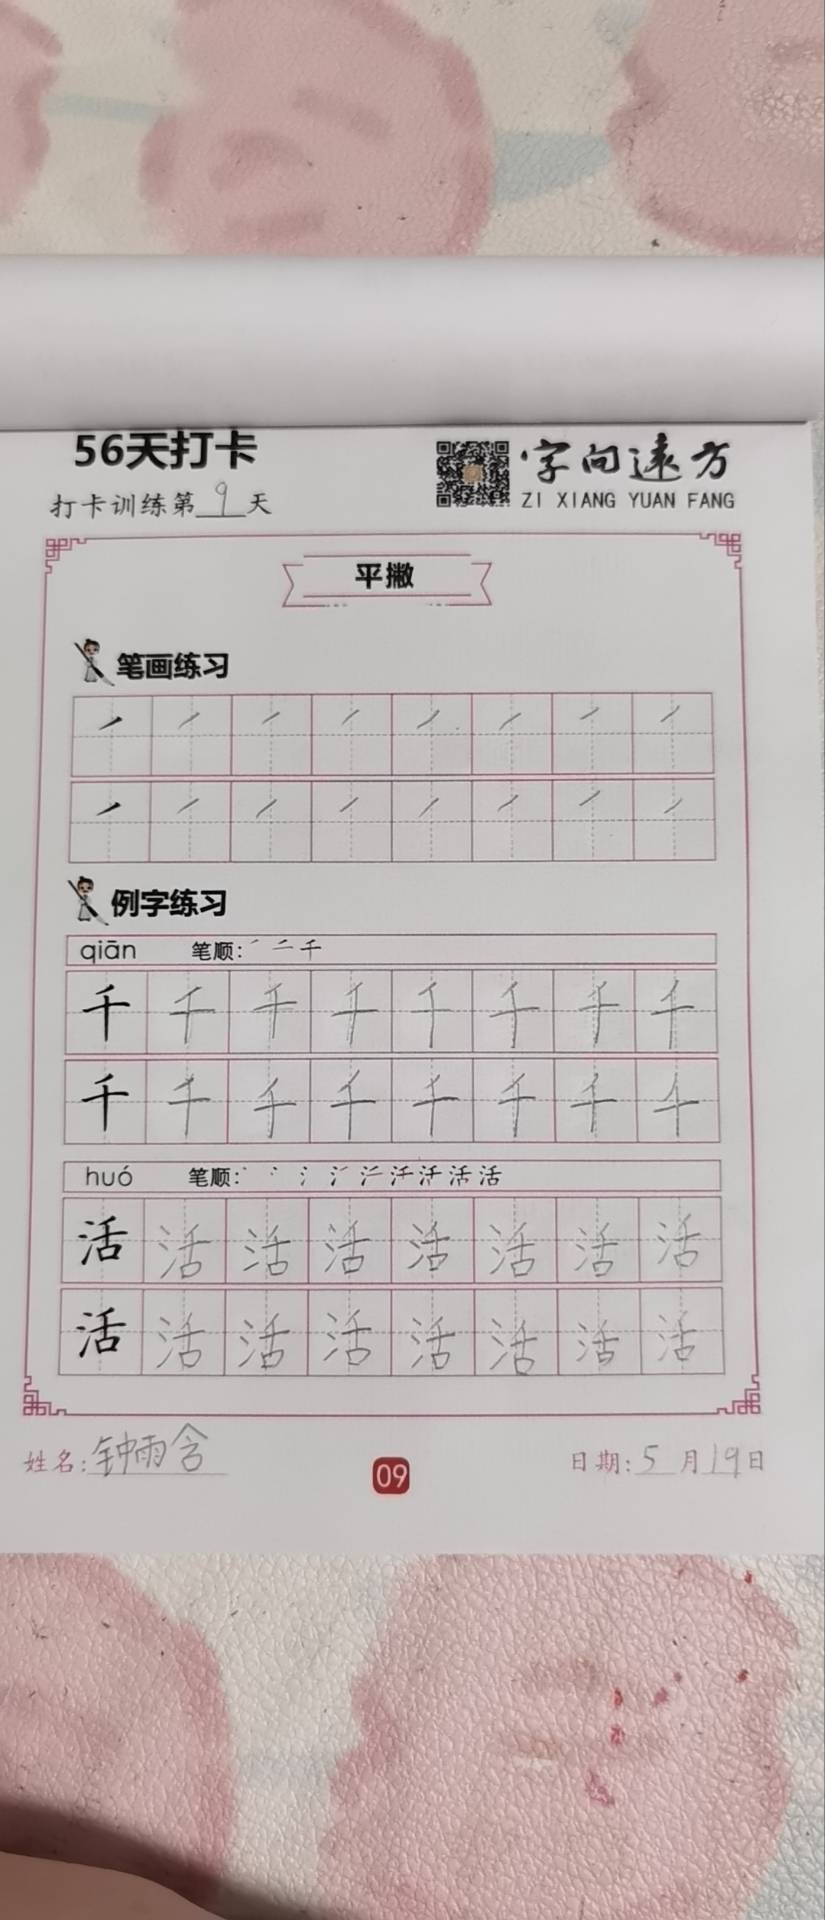 56天打卡
字向远方
打卡训练第9天
ZI XIANG YUAN FANG
平撇
笔画练习
例字练习
qiān 笔顺:
千 千 千 千 千 千 千 千
千 千 千 千 千 千 千 千
huó 笔顺:
活 活 活 活 活 活 活 活
活 活 活 活 活 活 活 活
姓名:钟雨含
09
日期:5月19日